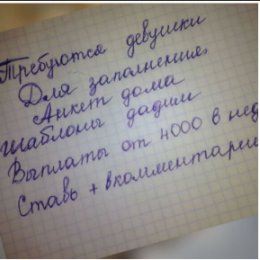 Требуются девушки
Для заполнения
Анкет дома
Шаблоны дадим
Выплаты от 4000 в нед
Ставь + вкомментарии